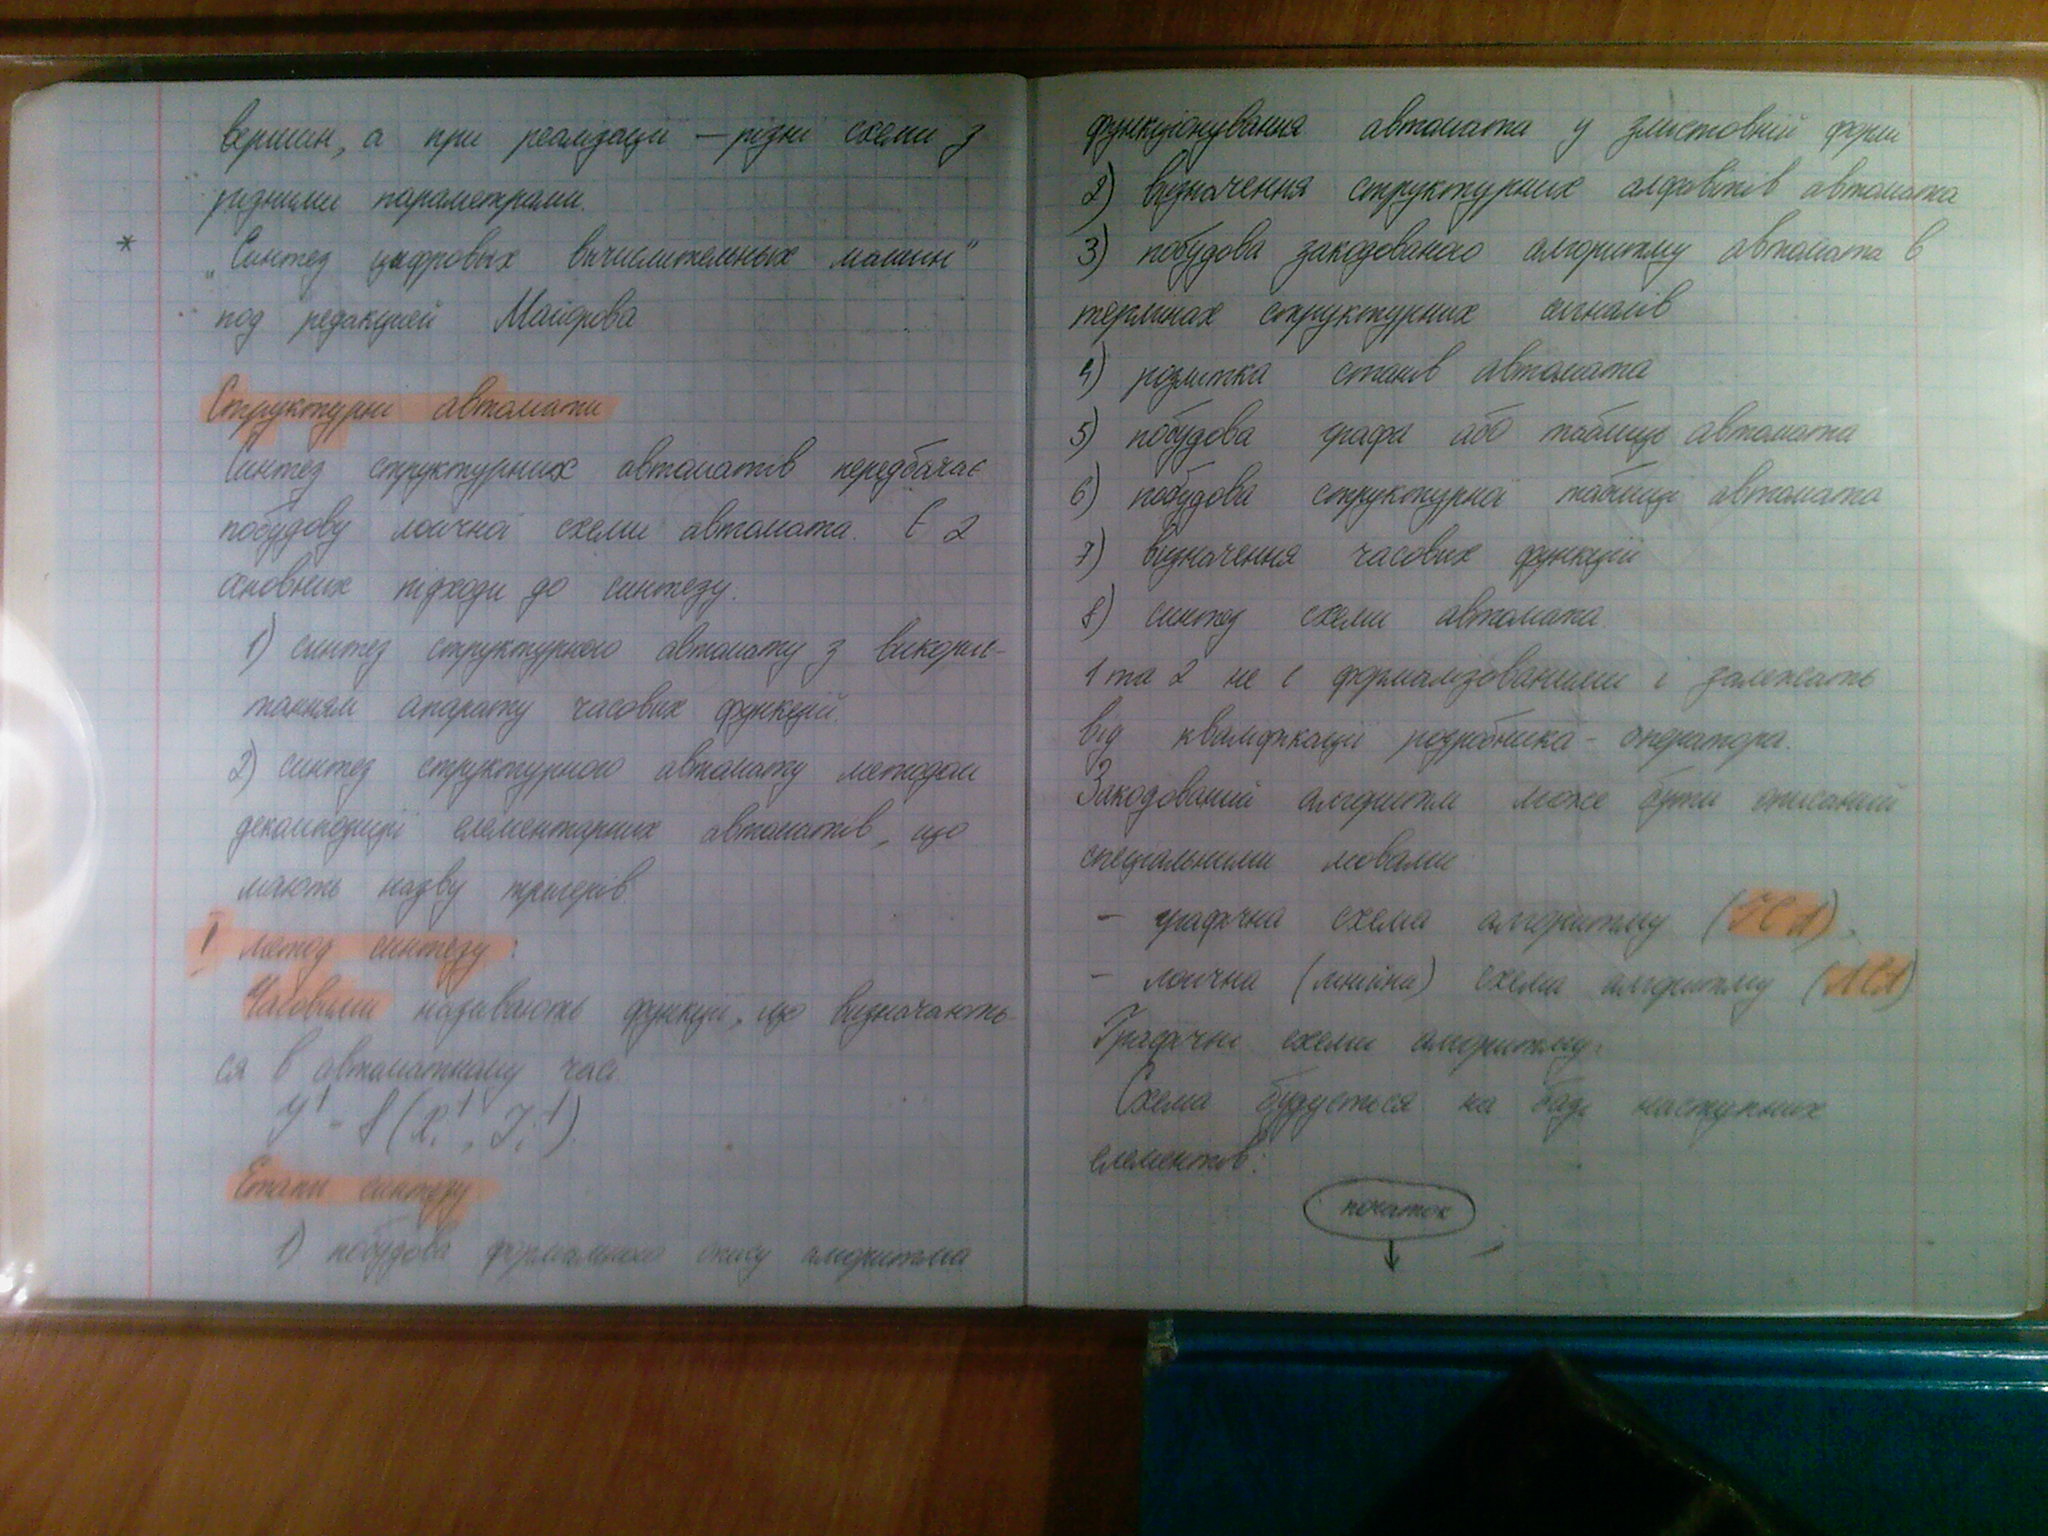 вершин, а при реалізації – різні схеми з
різними параметрами.
* „Синтез цифровых вычислительных машин"
под редакцией Майорова
Структурні автомати
Синтез структурних автоматів передбачає
побудову логічної схеми автомата. Є 2
основних підходи до синтезу.
1) синтез структурного автомату з викорис-
танням апарату часових функцій.
2) синтез структурного автомату методом
декомпозиції елементарних автоматів, що
мають назву тригерів.
I метод синтезу:
Часовими називають функції, що визначають-
ся в автоматному часі.
Етапи синтезу
1) побудова опису алгоритма
функціонування автомата у змістовній формі
2) визначення структурних алфавітів автомата
3) побудова закодованого алгоритму автомата в
термінах структурних сигналів
4) розмітка станів автомата
5) побудова графа або таблиці автомата
6) побудова структурної таблиці автомата
7) визначення часових функцій
8) синтез схеми автомата.
1 та 2 не є формалізованими і залежать
від кваліфікації розробника - оператора.
Закодований алгоритм може бути описаний
спеціальними мовами
– графічна схема алгоритму (ГСА),
– логічна (лінійна) схема алгоритму (ЛСА)
Графічні схеми алгоритму:
Схема будується на базі наступних
елементів:
початок